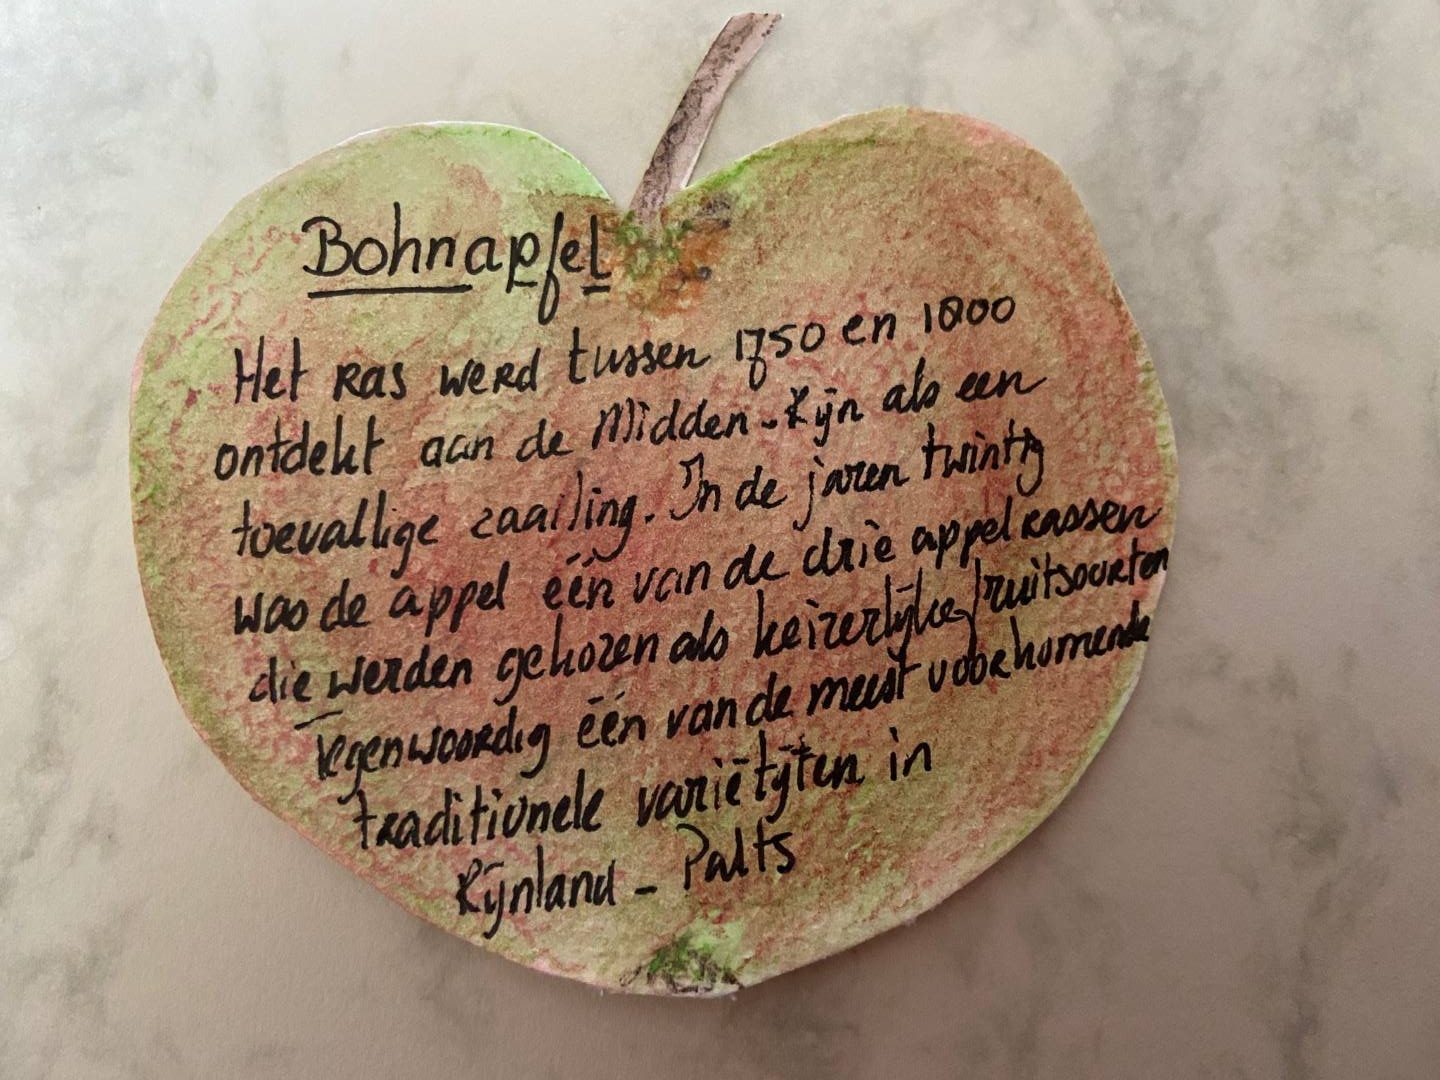 Bohnapfel
Het ras werd tussen 1750 en 1800
ontdekt aan de Midden-Rijn als een
toevallige zaailing. In de jaren twintig
was de appel één van de drie appelrassen
die werden gekozen als keizerlijke fruitsoorten
tegenwoordig één van de meest voorkomende
traditionele variëtijten in
Rijnland - Palts